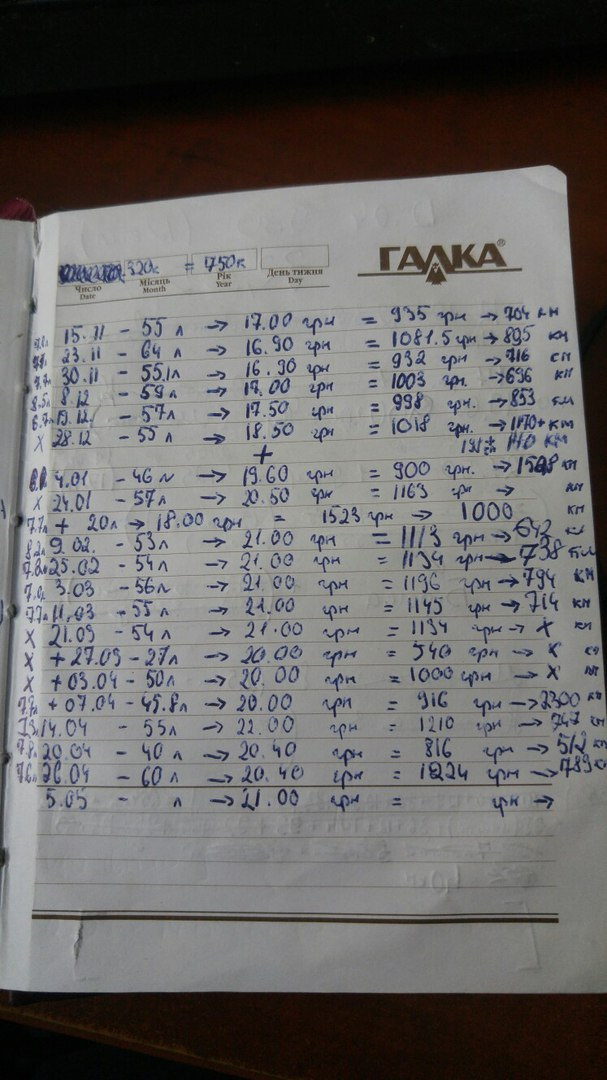 320к = 750к
ГАЛКА®
Число Місяць Рік День тижня
Date Month Year Day
15.11 - 55 л → 17.00 грн = 935 грн → 704 км
23.11 - 64 л → 16.90 грн = 1081.5 грн → 895 км
30.11 - 55,1л → 16.90 грн = 932 грн → 716 км
8.5л 8.12 - 59л → 17.00 грн = 1003 грн. → 696 км
6.7л 19.12 - 57л → 17.50 грн = 998 грн. → 853 км
X 28.12 - 55 л → 18.50 грн = 1018 грн. → 1170+ км
+ 140 км
4.01 - 46 л → 19.60 грн = 900 грн → км
X 24.01 - 57л → 20.50 грн = 1163 грн → км
7.7л + 20л → 18.00 грн = 1523 грн → 1000 км
8.2л 9.02 - 53л → 21.00 грн = 1113 грн → 642 км
7.8л 25.02 - 54л → 21.00 грн = 1134 грн → 738 км
7.0л 3.03 - 56л → 21.00 грн = 1196 грн → 794 км
7.7л 11.03 - 55л → 21.00 грн = 1145 грн → 714 км
X 21.03 - 54л → 21.00 грн = 1134 грн → X км
X + 27.03 - 27л → 20.00 грн = 540 грн → X км
X + 03.04 - 50л → 20.00 грн = 1000 грн → X км
+ 07.04 - 45.8л → 20.00 грн = 916 грн → 2300 км
14.04 - 55л → 22.00 грн = 1210 грн → 747 км
7.8л 20.04 - 40 л → 20.40 грн = 816 грн → 512 км
7.6л 26.04 - 60л → 20.40 грн = 1224 грн → 789 км
5.05 - л → 21.00 грн = грн →